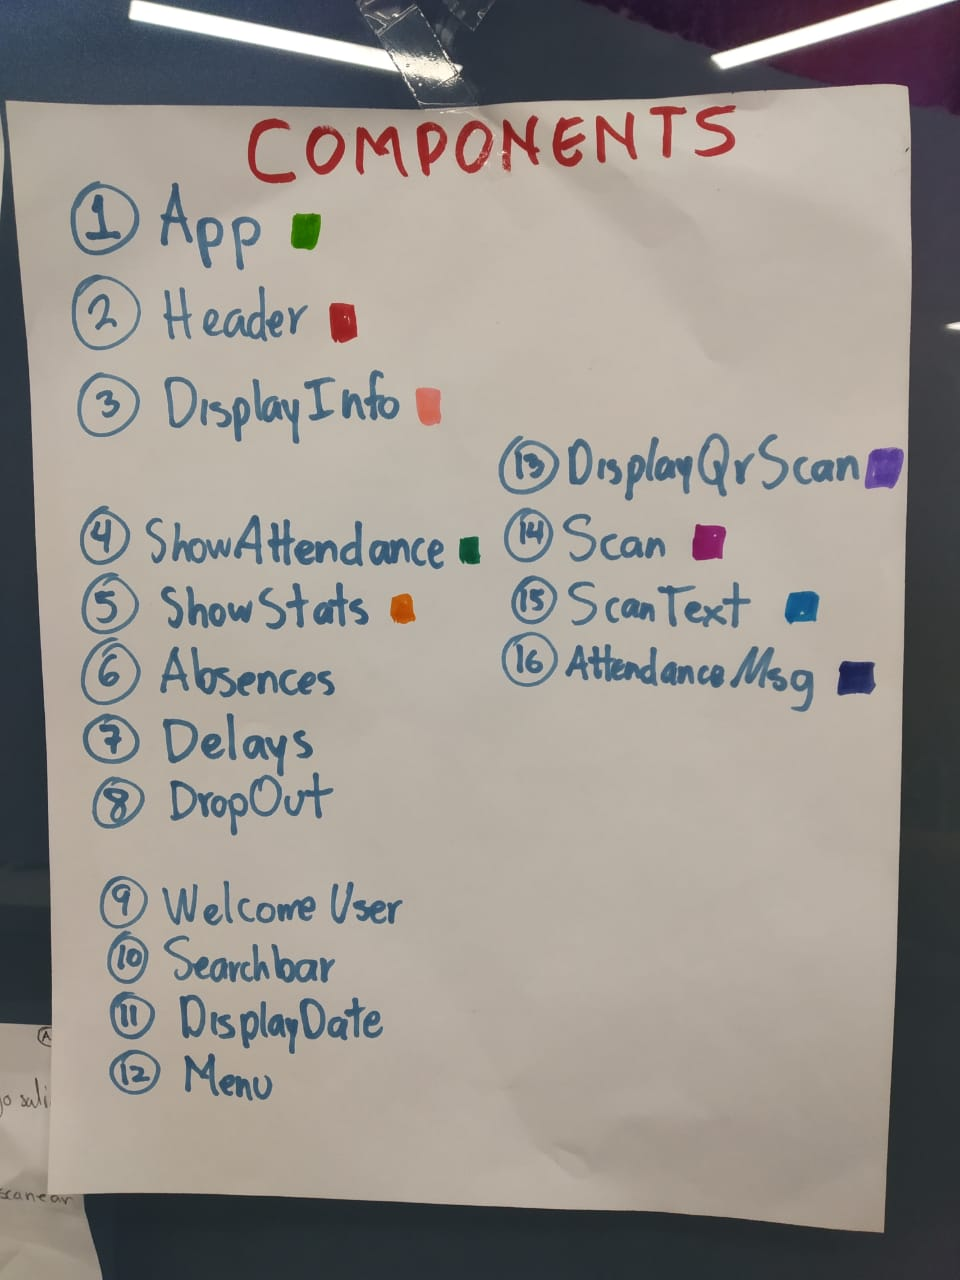 COMPONENTS
1 App
2 Header
3 DisplayInfo
4 ShowAttendance
5 ShowStats
6 Absences
7 Delays
8 DropOut
9 Welcome User
10 Searchbar
11 DisplayDate
12 Menu
13 DisplayQrScan
14 Scan
15 ScanText
16 AttendanceMsg
A
scanear